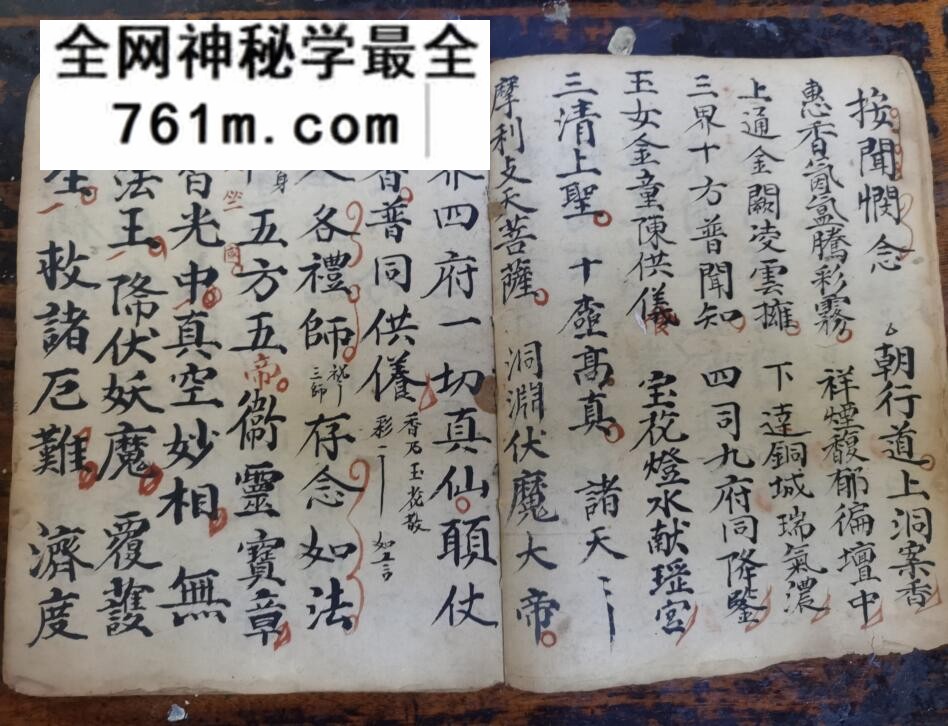 全网神秘学最全
761m.com
按聞憫念 朝行道上洞案香
惠香氤氳騰彩霧 祥煙馥郁徧壇中
上通金闕凌雲擁 下達銅城瑞氣濃
三界十方普聞知 四司九府同降鑒
玉女金童陳供儀 宝花燈水献瑶宮
三清上聖 十極高真 諸天
摩利支天菩薩 洞淵伏魔大帝
界四府一切真仙 願仗
香 普同供養 香乃玉花散
彩 如上言
各禮師 存念如法
三師
身 五方五帝 衛靈寶章
智光中 真空妙相 無
坐
國
法王 降伏妖魔 覆護
救諸厄難 濟度